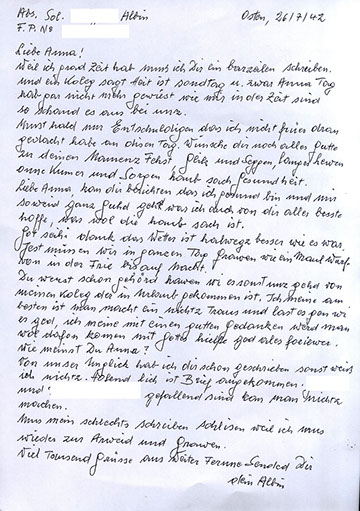 Abs. Sol. Albin Osten, 26/7/42
F.P. No
Liebe Anna!
Weil ich grad Zeit hab mus ich Dir ein barzeilen schreiben.
und ein Koleg sagt heit ist sondtag u. zwar Anna Tag
hab gar nicht mehr gewüst wie mir in der Zeit sind
so schaud es aus bei unz.
Must hald mir Entschuldigen das ich nicht frier dran
gedacht habe an disen Tag. Wünsche dir noch alles gutte
zu deinen Namenz Fehst Glük und Seggen, langes Lewen
onne Kumer und Sorgen haubt sach Gesundheit.
Liebe Anna, kan dir berichten das ich gesund bin und mir
soweid ganz guhd geht was ich auch von dir alles beste
hoffe, was wol die haubt sach ist.
Got sei dank das Wetter ist halbwegz besser wie es war.
Fest müssen wir in ganzen Tag Grawen wie ein Maul wurf
von in der Frie bis auf Nacht.
Du werst schon gehörd hawen wi es sonst unz gehd von
meinen Koleg der in Urlaub gekommen ist. Ich meine am
besten ist man macht ein nichtz traus und last es gen wi
es ged, ich meine mit einen gutten gedanken werd man
wol dafon kömen mit Gottes hielfe gad alez
Wie meinst Du Anna?
Von unser Unglick hab ich dir schon geschrieben sonst weis
ich nichtz. Hofend lich ist Brief angekommen.
und gefallend sind kan man nichtz
machen.
Mus mein schlechts schreiben schlisen weil ich mus
wieder zur Arweid und grawen.
Viel Tousend grüsse aus weiter Ferne Sended Dir
dein Albin